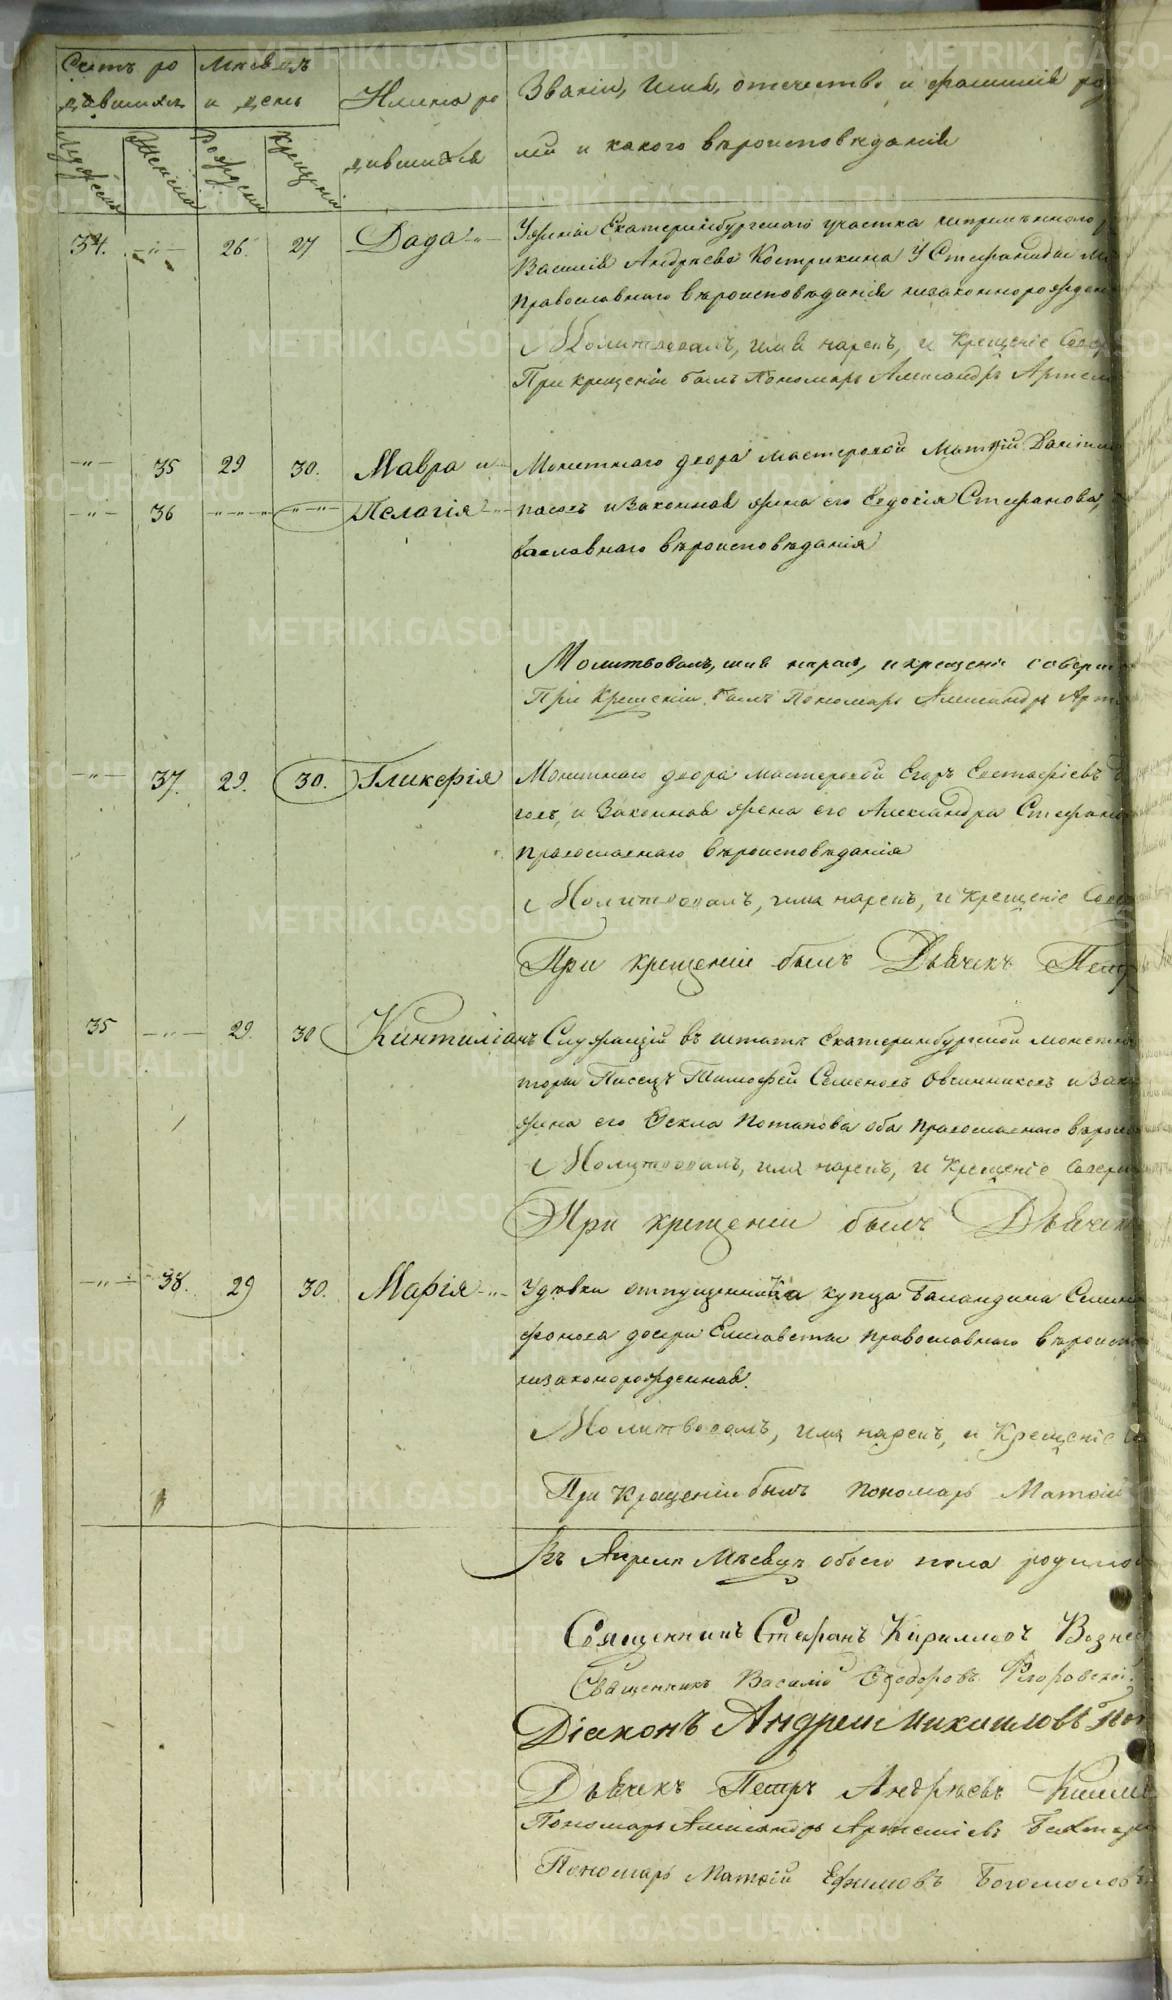 Счетъ ро
дившихся
Мѣсяцъ
и день
Имена ро
дившихся
Званіе, имя, отечество и фамилія ро
лей и какого вѣроисповѣданія
Мужеска
Женска
Рожденія
Крещенія
34. —"— 26. 27 Дада
Василія Андреева Кострикина у Стефаниды
Православнаго вѣроисповѣданія незаконнорожден
Молитвовалъ, имя нарекъ, и Крещеніе Совер
При крещеніи былъ Пономарь Александръ Артем
—"— 35 29 30. Мавра и Монетнаго двора мастеровой Матѳій Даніил
—"— 36 —"— —"— Пелагія и законная жена его Евдокія Стефанова,
вославнаго вѣроисповѣданія
Молитвовалъ, имя нарекъ, и крещеніе соверш
При Крещеніи былъ Пономарь Александръ Арте
—"— 37. 29. 30. Гликерія Монетнаго двора мастеровой Егоръ Евстафіевъ
и законная жена его Александра Стефано
Православнаго вѣроисповѣданія
Молитвовалъ, имя нарекъ, и Крещеніе Совер
При крещеніи былъ Дьячекъ Петр
35 —"— 29. 30 Кинтиліанъ Служащій въ штатѣ Екатеринбургской монетн
торы Писецъ Тимофей Семеновъ Овчинниковъ и Зако
жена его Ѳекла Потапова оба Православнаго вѣроис
Молитвовалъ, имя нарекъ, и Крещеніе Совери
При крещеніи былъ Дьячек
—"— 38. 29 30. Марія У дѣвки отпущенной купца Баландина Семен
фонова дочери Елисаветы Православнаго вѣроисп
незаконорожденная.
Молитвовалъ, имя нарекъ, и Крещеніе С
При Крещеніи былъ Пономарь Матѳій
Въ Апрелѣ Мѣсяцѣ обоего пола родило
Священникъ Стефанъ Кирилловъ Возне
Священникъ Василій Ѳеодоровъ
Діаконъ Андрей Михайловъ Поп
Дьячекъ Петръ Андреевъ
Пономарь Александръ Артеміевъ
Пономарь Матѳій Ефимовъ Богомоловъ
METRIKI.GASO-URAL.RU